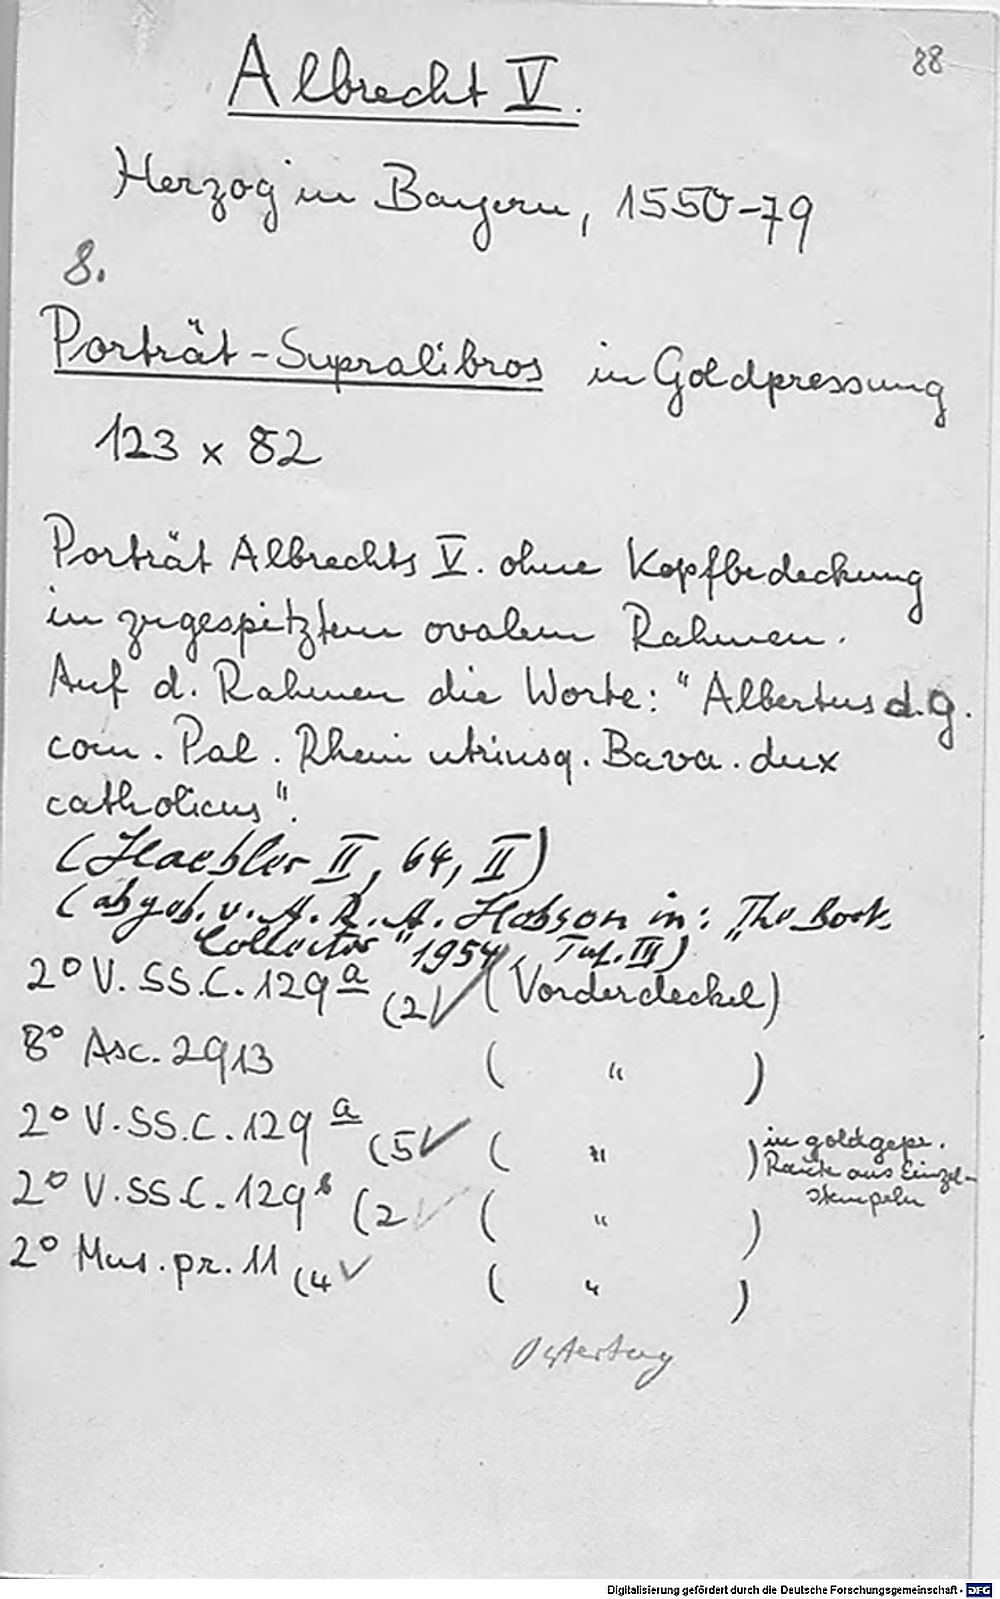 88
Albrecht V.
Herzog in Bayern, 1550-79
8.
Porträt-Supralibros in Goldpressung
123 x 82
Porträt Albrechts V. ohne Kopfbedeckung
in zugespitztem ovalem Rahmen.
Auf d. Rahmen die Worte: "Albertus d. g.
com. Pal. Rhein utriusq. Bava. dux
catholicus".
(Haebler II, 64, II)
(abgeb. v. A. R. A. Hobson in: "The Book
Collector" 1954, Taf. III)
2° V. SS. C. 129 a (2 ✓ (Vorderdeckel)
8° Asc. 2913 ( " )
2° V. SS. C. 129 a (5 ✓ ( " ) in goldgepr.
Raute aus Einzel-
stempeln
2° V. SS. C. 129 b (2 ✓ ( " )
2° Mus. pr. 11 (4 ✓ ( " )
Ostertag
Digitalisierung gefördert durch die Deutsche Forschungsgemeinschaft - DFG